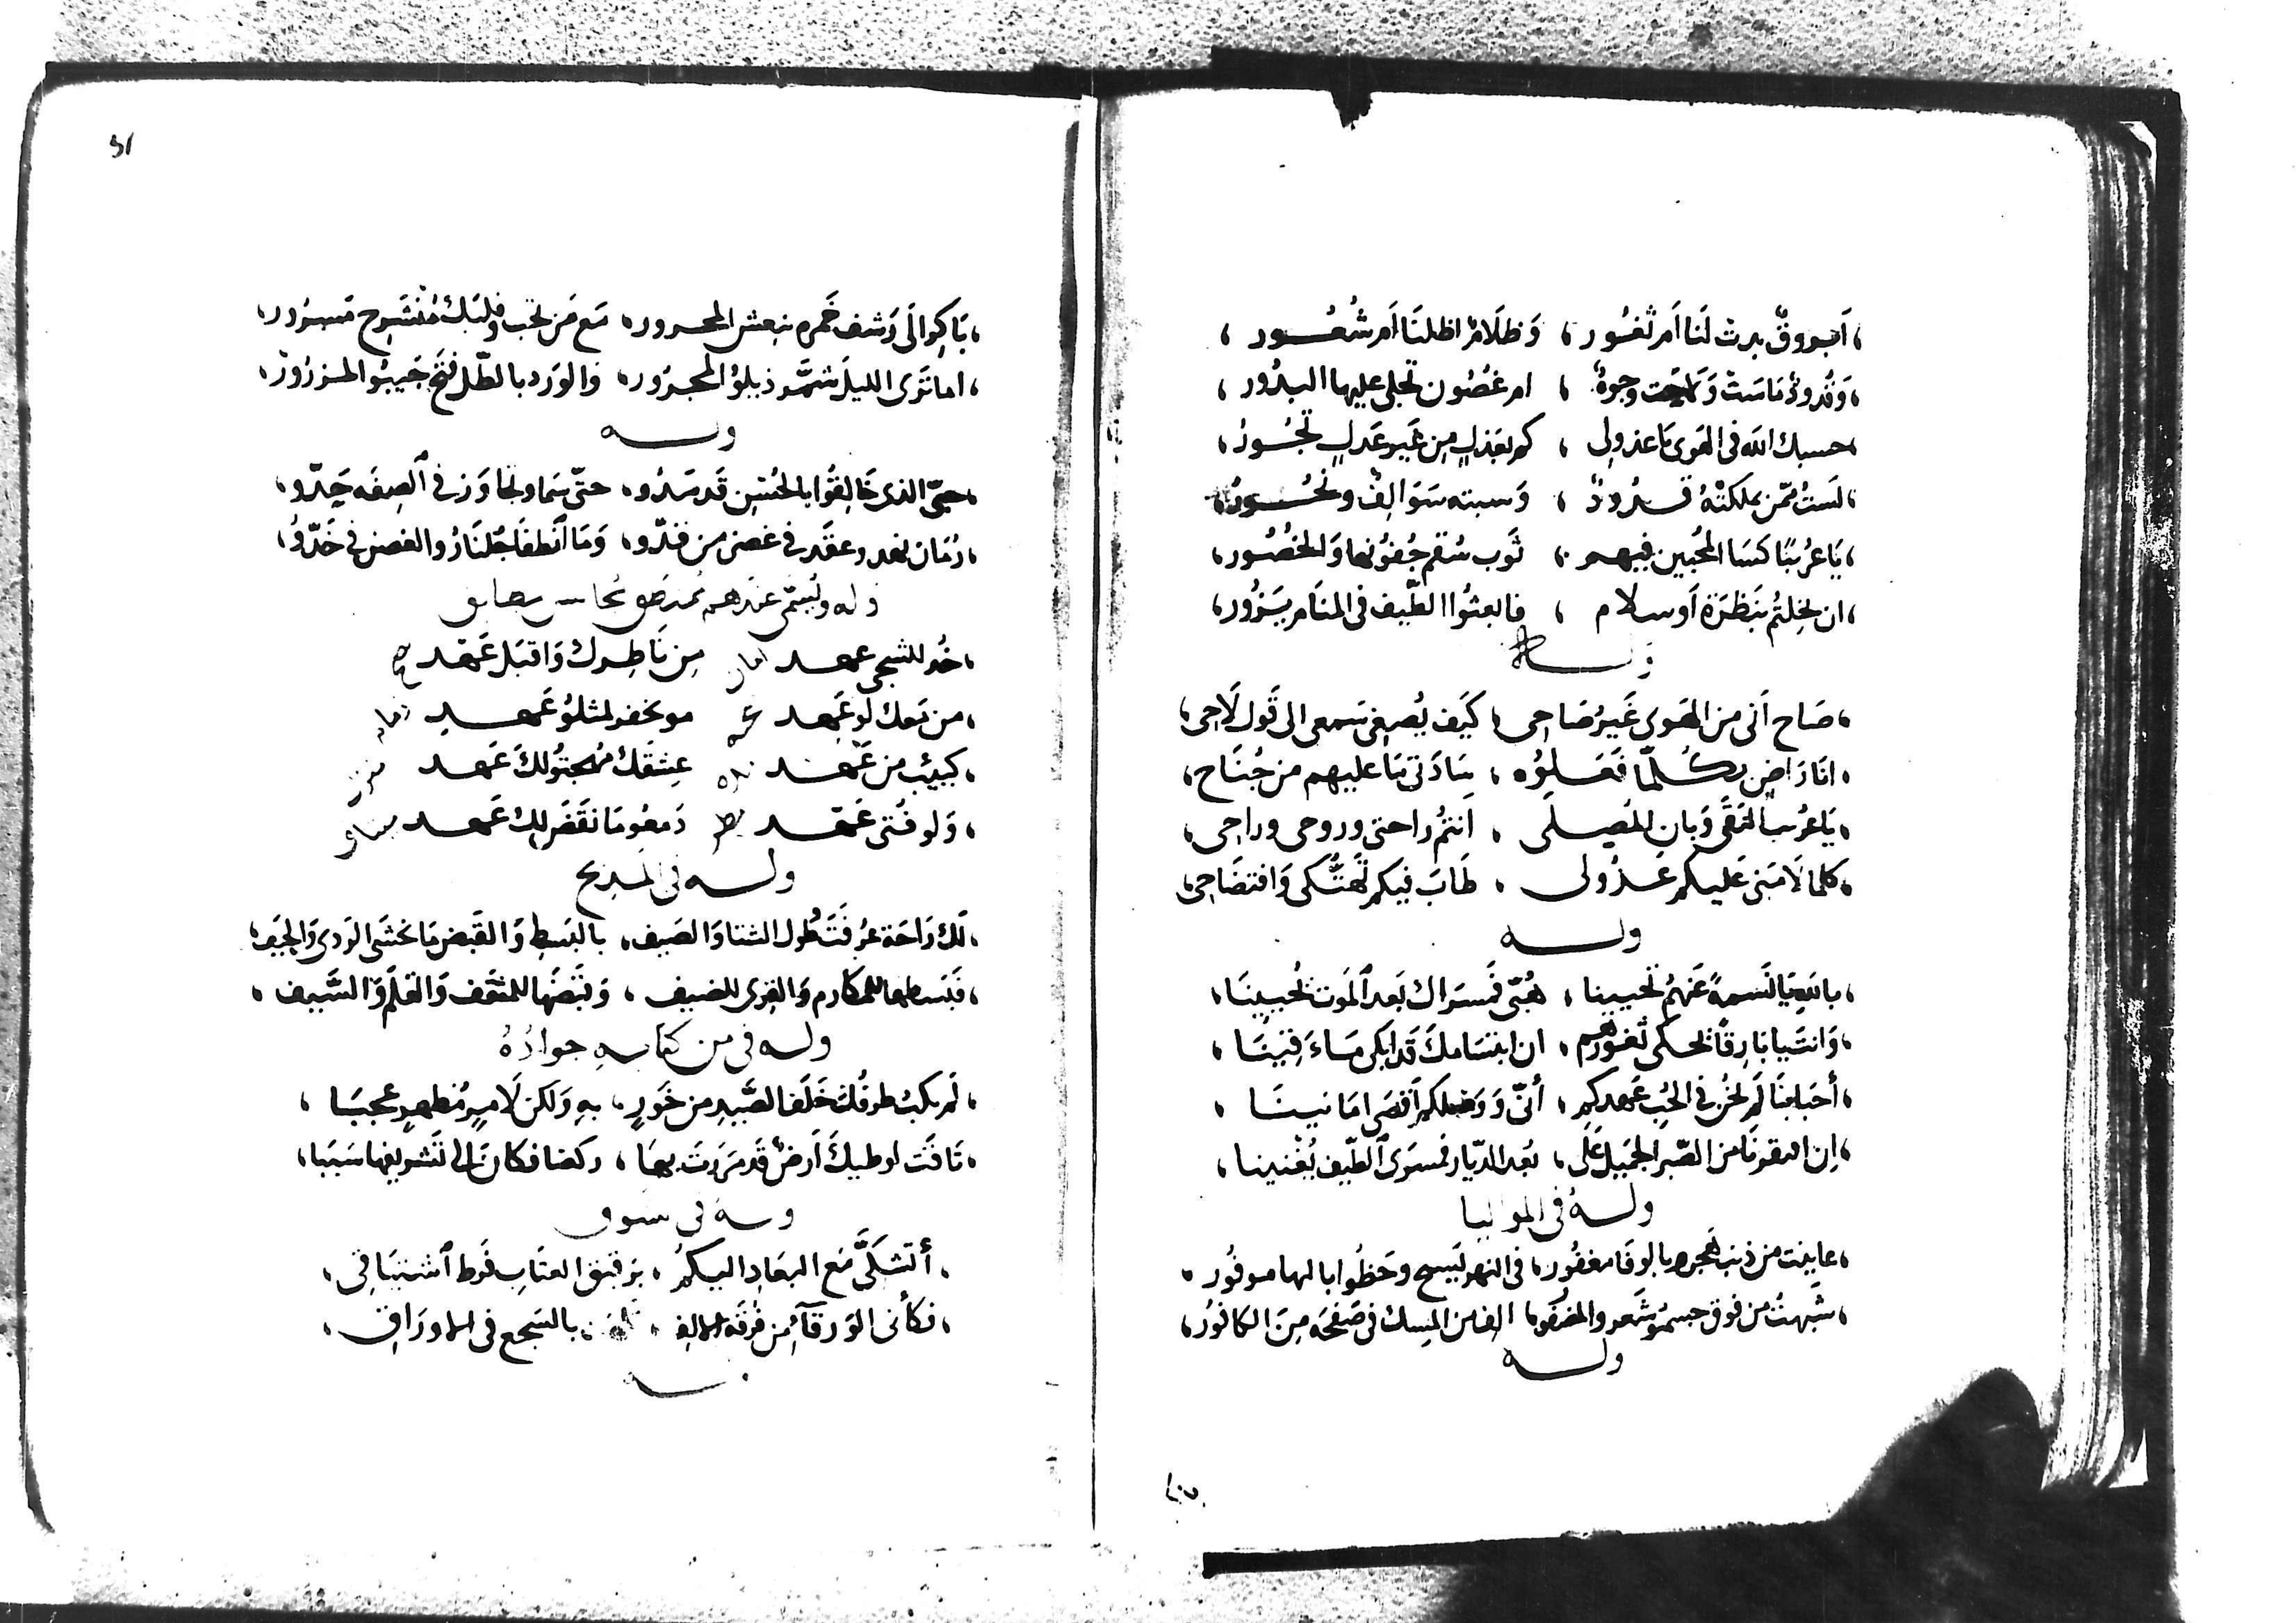 أبروق بدت لنا أم ثغور ، وظلام اظلنا أم شعور
وقدود ماست ولاحت وجوه ، ام غصون تجلى عليها البدور
حسبك الله في الهوى يا عذولي ، كم بعذل من غير عدل تجور
لست ممن ملكته قدود ، وسبته سوالف ونحور
يا عريبا كسا المحبين فيهم ، ثوب سقم جفونها والخصور
ان بخلتم بنظرة أو سلام ، فابعثوا الطيف في المنام يزور
وله
صاح اني من الهوى غير صاحى ، كيف يصغى سمعى الى قول لاحى
انا راض بكلما فعلوه ، سادتى ما عليهم من جناح
يا عريب النقى وبان المصلى ، انتم راحتى وروحى وراحى
كلما لامنى عليكم عذولى ، طاب فيكم تهتكى وافتضاحى
وله
بالله يا نسمة عنهم تحيينا ، هبى فمسراك بعد الموت تحيينا
وانت يا بارقا تحكى ثغورهم ، ان ابتسامك قد ابكى مآقينا
أحبابنا لم نخن في الحب عهدكم ، أنى ووصلكم أقصى امانينا
ان ابقونا من الصبر الجميل على ، بعد الديار فمسرى الطيف يغنينا
وله في المواليا
عاينت من ذنب هجره بالوفا مغفور ، في النهر يسبح وحظوا بالها موفور
شبهت من فوق جسمو شعرو المضفور ، الف من المسك في صفحه من الكافور
وله
باكر الى رشف خمره تنعش المحرور ، مع من تحب وقلبك منشرح مسرور
اما ترى الليل شمر ذيلو المجرور ، والورد بالطل فتح جيبو المزرور
وله
حبى الذى خالقوا بالحسن قد مدو ، حتى سما وتجاوز في الصفه حدو
رمان نهدو عقد في غصن من قدو ، وما انطفا جلنارو الغض في خدو
وله ويسمى عندهم
خد للشجى عهد امان من ناظرك واقبل عهد
من لو عهد مو نخفر لمثلو عهد
كييب من عهد عشقك مهجتو لك عهد
ولو فتى عهد دمعو ما نقض لك عهد
وله في المديح
لك راحة عرفت طول الشتا والصيف ، بالبسط والقبض ما تخشى الردى والحيف
فبسطها للمكارم والقرى للضيف ، وقبضها للمثقف والقلم والسيف
وله في من كبا به جواده
لم يكب طرفك خلف الصيد من خور ، به ولكن لامر مظهر عجبا
تاقت لوطيك أرض قد مررت بها ، ركضا فكان الى تشريفها سببا
وله في شوق
أتشكى مع البعاد اليكم ، برقيق العتاب فرط اشتياقي
فكأنى الورقآء من فرقة الالف ، بالسجع في الاوراق